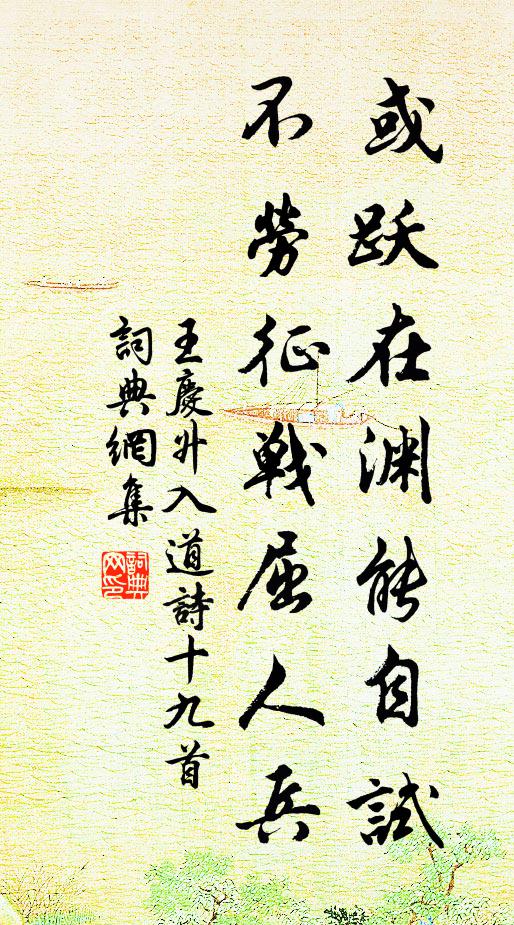 或跃在渊能自試
不勞征戰屈人兵
王慶升入道詩十九首
詞典網集
詞典
网印